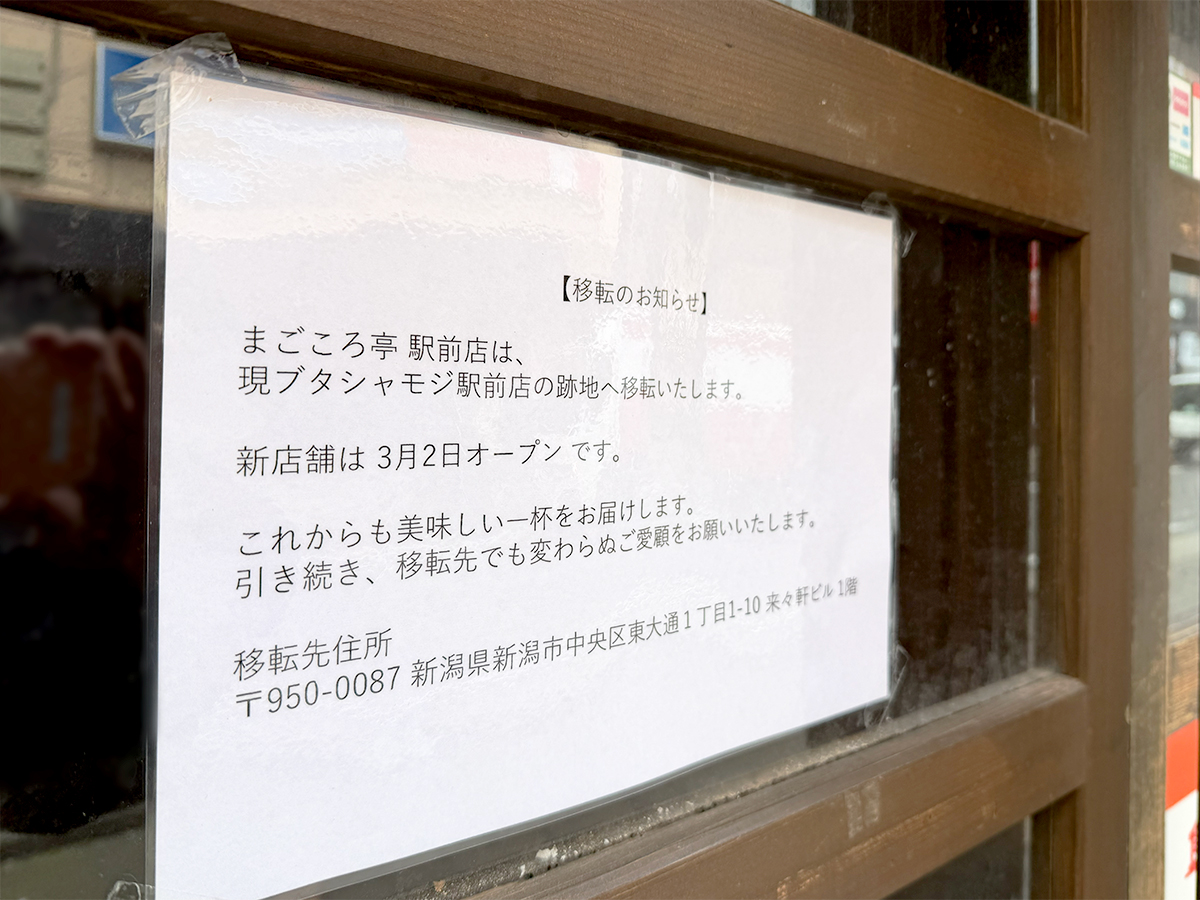 【移転のお知らせ】
まごころ亭 駅前店は、
現ブタシャモジ駅前店の跡地へ移転いたします。
新店舗は 3月2日オープン です。
これからも美味しい一杯をお届けします。
引き続き、移転先でも変わらぬご愛顧をお願いいたします。
移転先住所
〒950-0087 新潟県新潟市中央区東大通１丁目1-10 来々軒ビル 1階